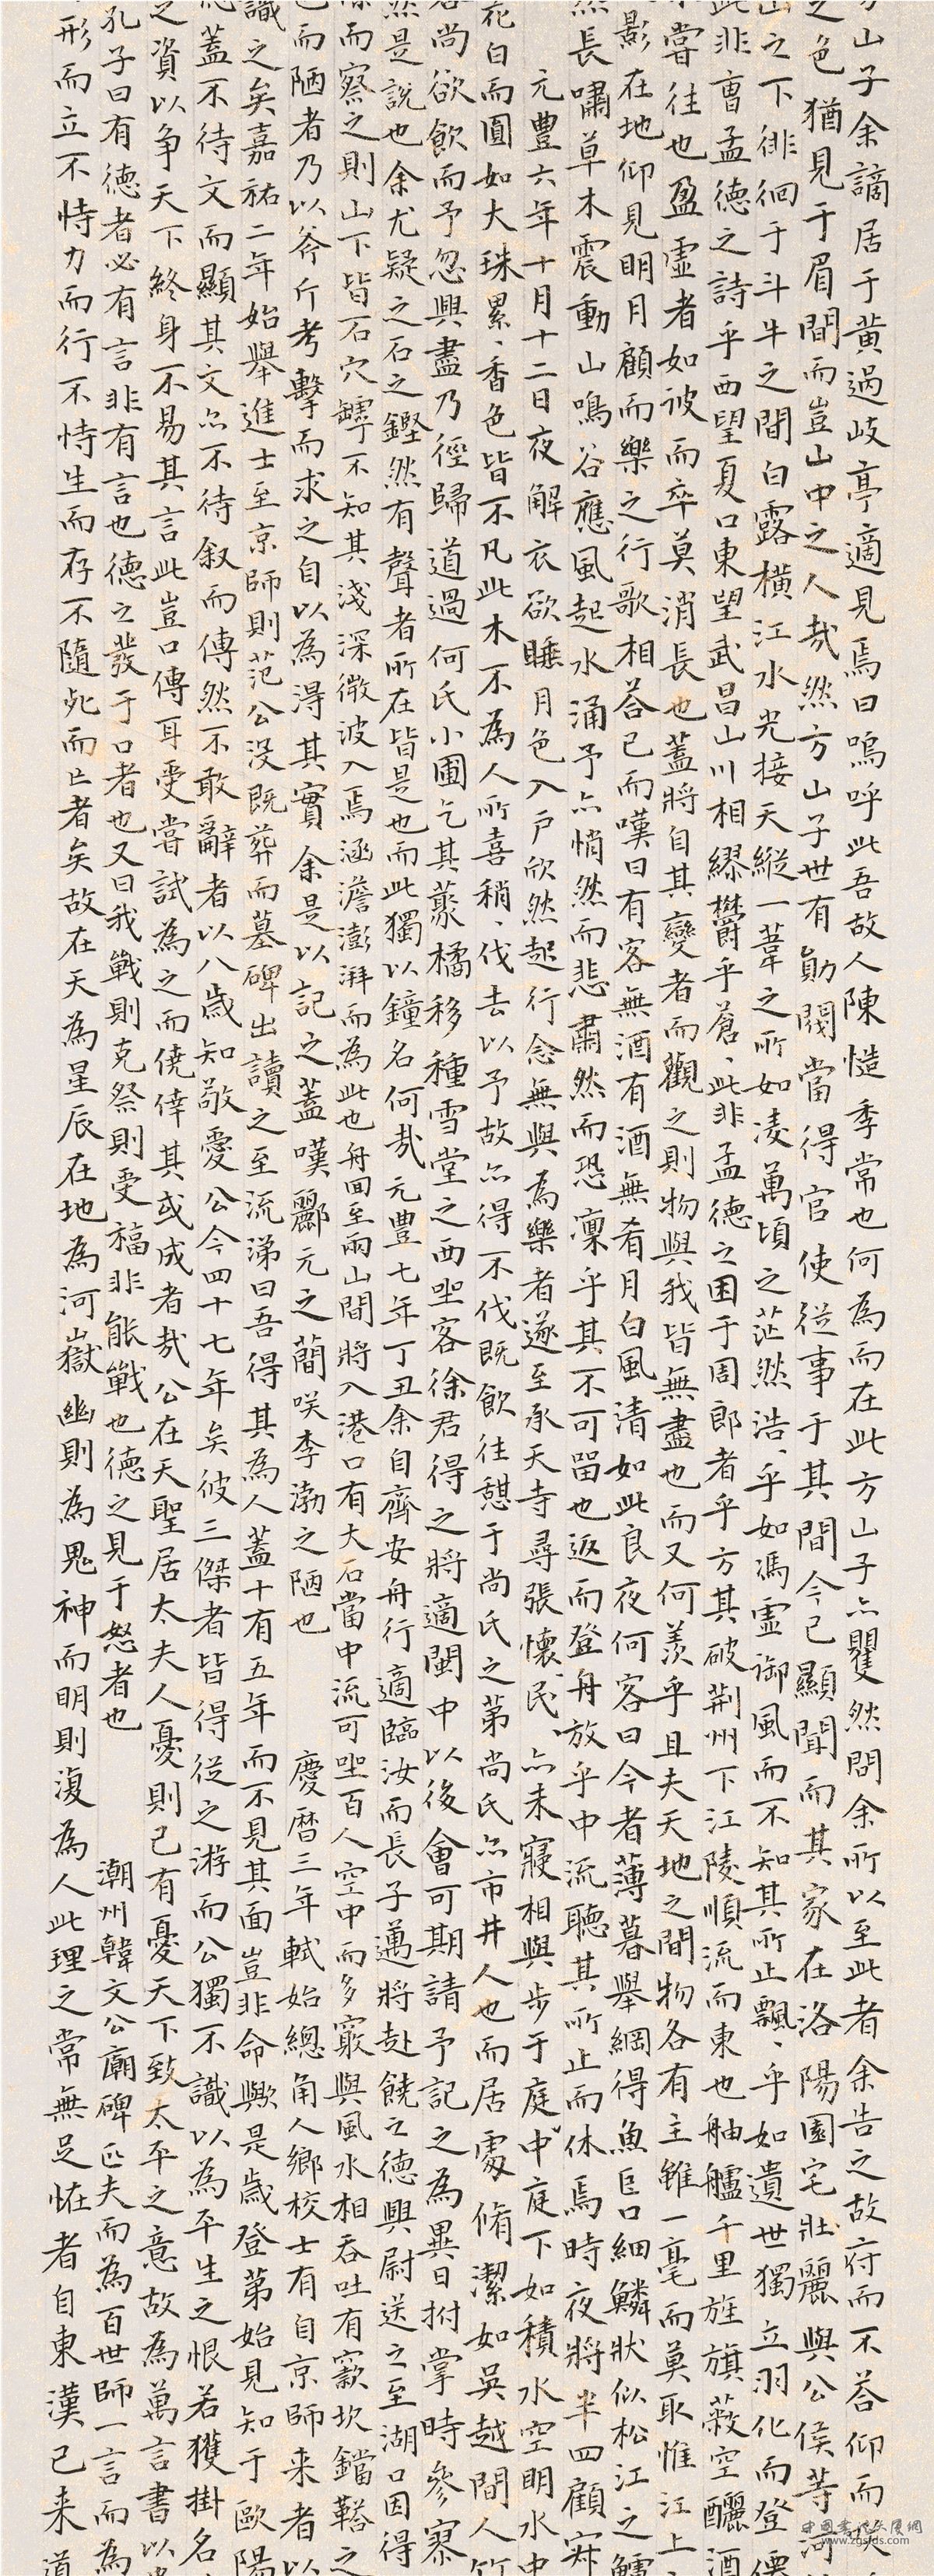 山子余謫居于黃過岐亭適見焉曰嗚呼此吾故人陳慥季常也何為而在此方山子亦矍然問余所以至此者余告之故府而不荅仰而
之色猶見于眉間而豈山中之人哉然方山子世有勛閥當得官使從事于其間今已顯聞而其家在洛陽園宅壯麗與公侯等河
山之下徘徊于斗牛之間白露橫江水光接天縱一葦之所如凌萬頃之茫然浩、乎如馮虛御風而不知其所止飄、乎如遺世獨立羽化而登僊
此非曹孟德之詩乎西望夏口東望武昌山川相繆欝乎蒼、此非孟德之困于周郎者乎方其破荊州下江陵順流而東也舳艫千里旌旗蔽空釃酒
嘗往也盈虛者如彼而卒莫消長也蓋將自其變者而觀之則物與我皆無盡也而又何羨乎且夫天地之間物各有主雖一毫而莫取惟江上
影在地仰見明月顧而樂之行歌相荅已而嘆曰有客無酒有酒無肴月白風清如此良夜何客曰今者薄暮舉網得魚巨口細鱗狀似松江之鱸
然長嘯草木震動山鳴谷應風起水涌予亦悄然而悲肅然而恐凜乎其不可留也返而登舟放乎中流聽其所止而休焉時夜將半四顧寂
元豐六年十月十二日夜解衣欲睡月色入戶欣然起行念無與為樂者遂至承天寺尋張懷民、亦未寢相與步于庭中庭下如積水空明水中
花白而圓如大珠累、香色皆不凡此木不為人所喜稍、伐去以予故亦得不伐既飲往憩于尚氏之第尚氏亦市井人也而居處脩潔如吳越間人竹
尚欲飲而予忽興盡乃徑歸道過何氏小圃乞其藂橘移種雪堂之西坐客徐君得之將適閩中以後會可期請予記之為異日拊掌時參寥
然是說也余尤疑之石之鏗然有聲者所在皆是也而此獨以鐘名何哉元豐七年丁丑余自齊安舟行適臨汝而長子邁將赴饒之德興尉送之至湖口因得
而察之則山下皆石穴罅不知其淺深微波入焉涵澹澎湃而為此也舟回至兩山間將入港口有大石當中流可坐百人空中而多竅與風水相吞吐有窾坎鏜鞳之
而陋者乃以斧斤考擊而求之自以為得其實余是以記之蓋嘆酈元之簡咲李渤之陋也 慶曆三年軾始總角人鄉校士有自京師来者以
識之矣嘉祐二年始舉進士至京師則范公沒既葬而墓碑出讀之至流涕曰吾得其為人蓋十有五年而不見其面豈非命歟是歲登第始見知于歐陽
蓋不待文而顯其文亦不待叙而傳然不敢辭者以八歲知敬愛公今四十七年矣彼三傑者皆得從之游而公獨不識以為平生之恨若獲掛名
之資以爭天下終身不易其言此豈口傳耳受嘗試為之而僥倖其或成者哉公在天聖居太夫人憂則已有憂天下致太平之意故為萬言書以
孔子曰有德者必有言非有言也德之發于口者也又曰我戰則克祭則受福非能戰也德之見于怒者也 潮州韓文公廟碑 匹夫而為百世師一言而為
形而立不恃力而行不恃生而存不隨死而亡者矣故在天為星辰在地為河嶽幽則為鬼神而明則復為人此理之常無足怪者自東漢已来道
中国书法大厦网
www.zgsfds.com